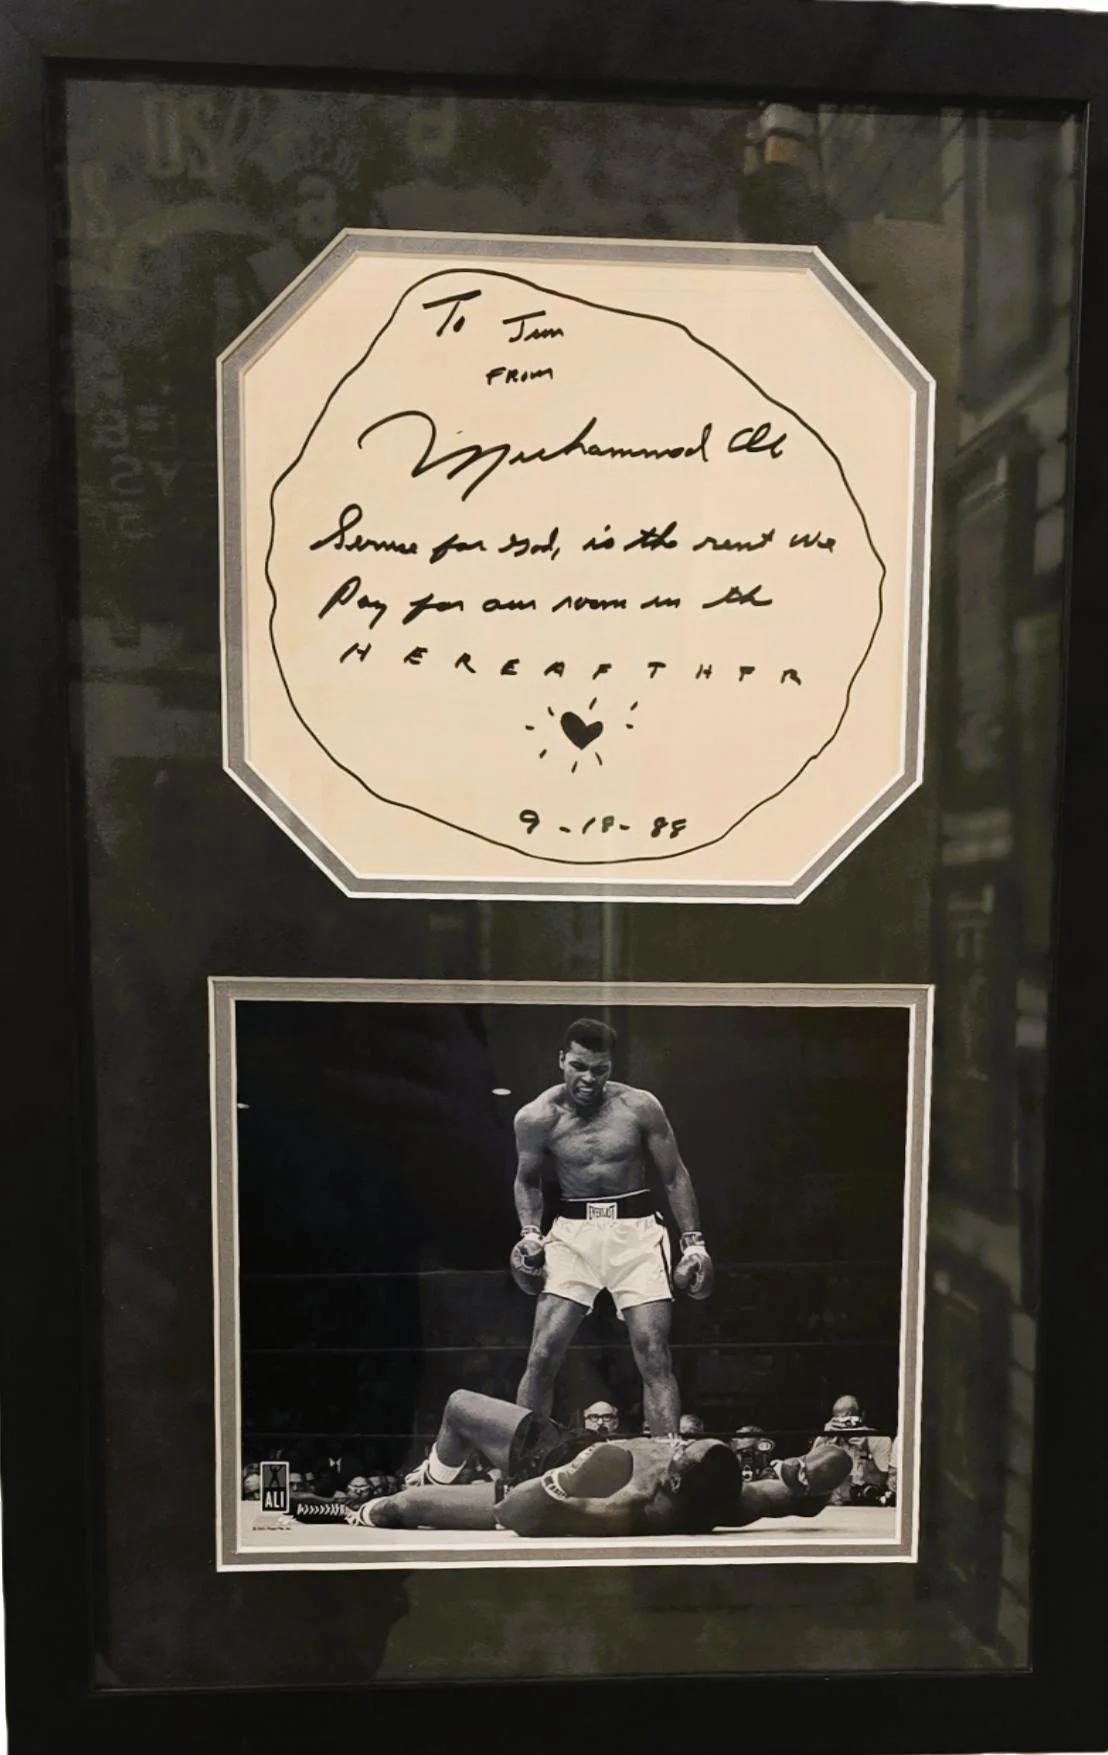 To Jim
FROM
Muhammad Ali
Service for God, is the rent we
Pay for our room in the
HEREAFTHER
9-18-88
EVERLAST
ALI